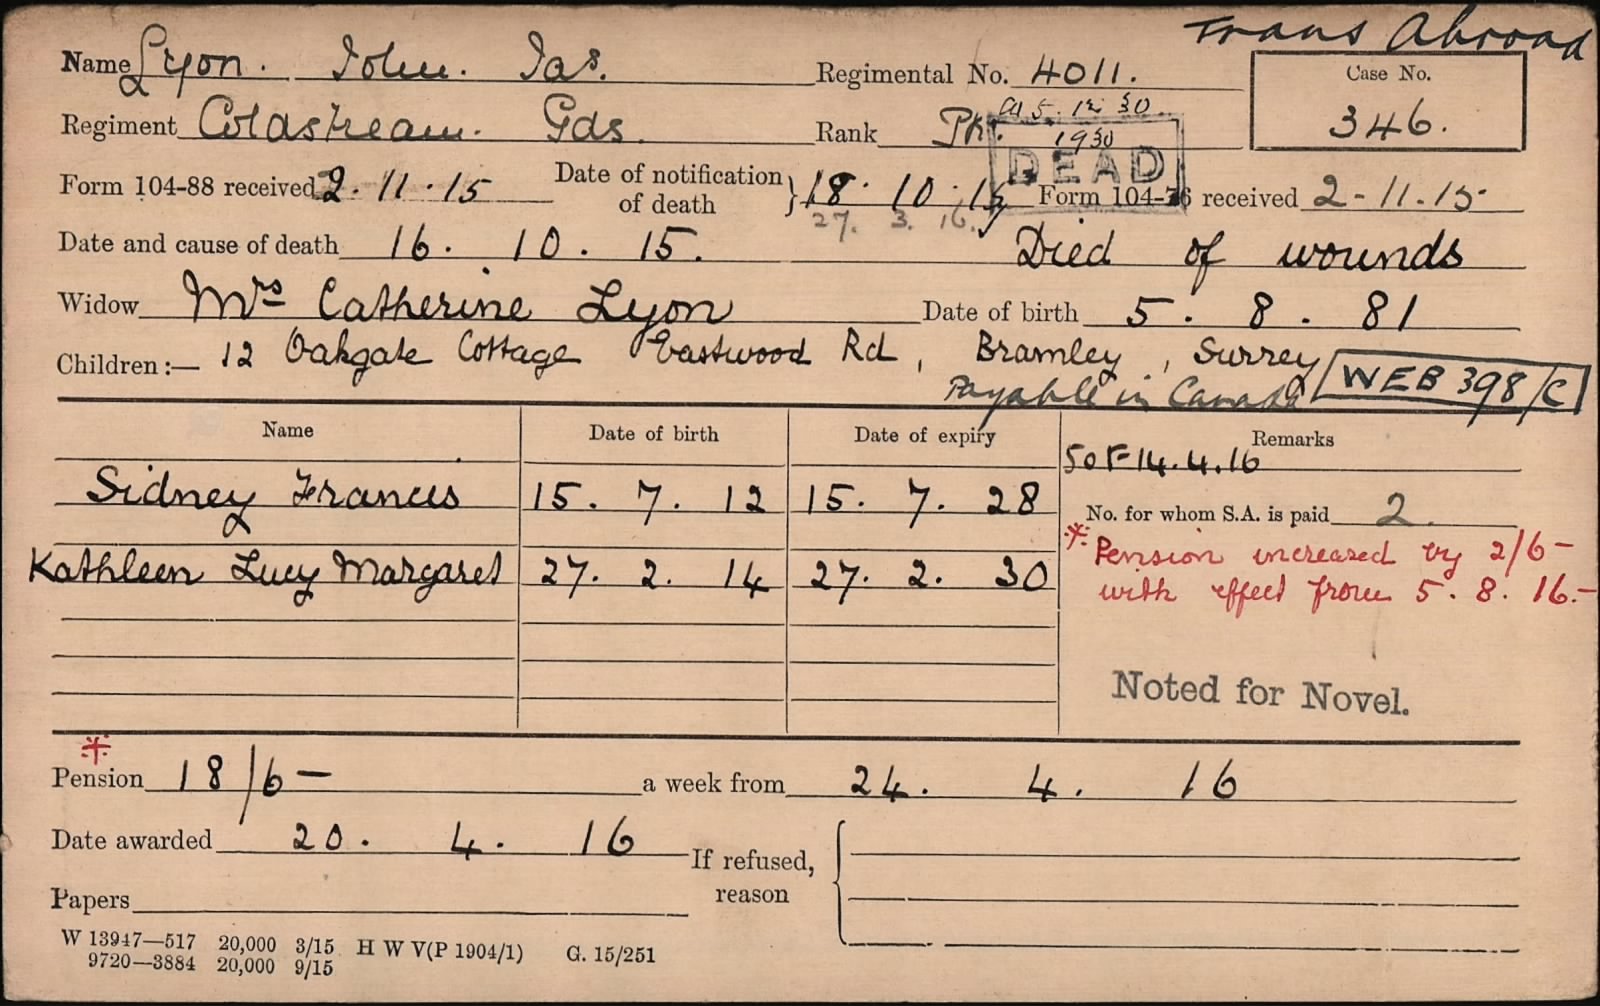 Trans Abroad
Name Lyon. John. Jas. Regimental No. 4011. Case No.
346.
Regiment Coldstream. Gds. Rank Pte.
5. 12 30
1930
DEAD
Form 104-88 received 2. 11. 15 Date of notification of death } 18. 10. 15 Form 104-76 received 2-11.15
27. 3. 16.
Date and cause of death 16. 10. 15. Died of wounds
Widow Mrs Catherine Lyon Date of birth 5. 8. 81
Children:— 12 Oakgate Cottage Eastwood Rd, Bramley, Surrey
Payable in Canada WEB 398/C
Name Date of birth Date of expiry Remarks
14.4.16
Sidney Francis 15. 7. 12 15. 7. 28
No. for whom S.A. is paid 2.
* Pension increased by 2/6-
Kathleen Lucy Margaret 27. 2. 14 27. 2. 30
with effect from 5. 8. 16.-
Noted for Novel.
*
Pension 18/6- a week from 24. 4. 16
Date awarded 20. 4. 16
If refused, reason
Papers
W 13947—517 20,000 3/15 H W V(P 1904/1) G. 15/251
9720—3884 20,000 9/15